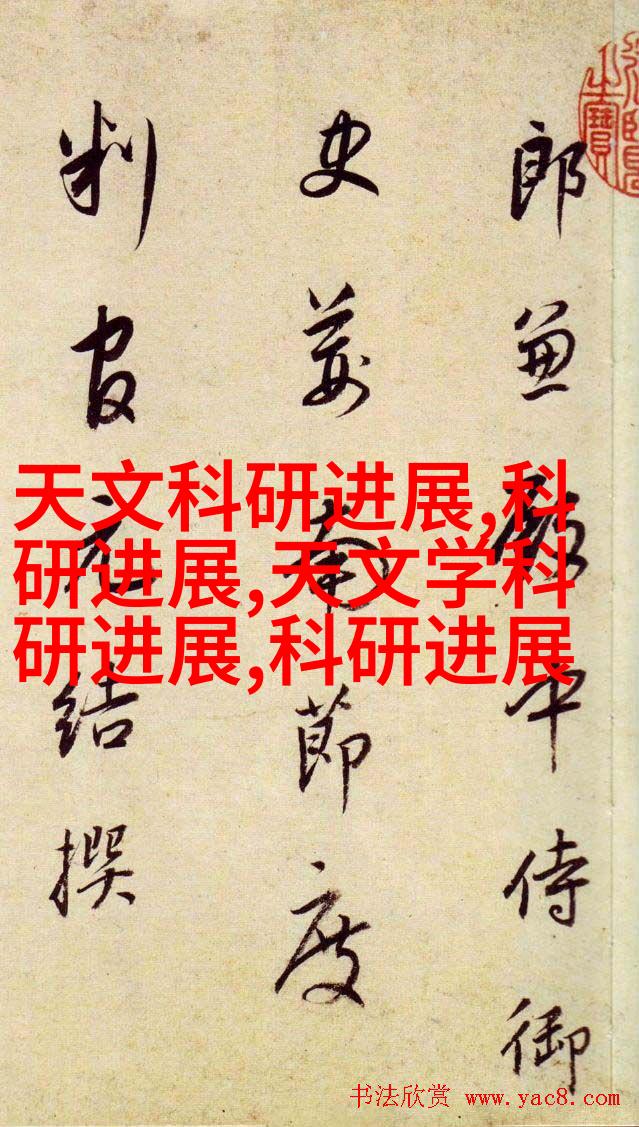 郎兼殿中侍御
史荆南節度
判官元結撰
天文科研进展,科
研进展,天文学科
研进展,科研进展
书法欣赏 www.yac8.com